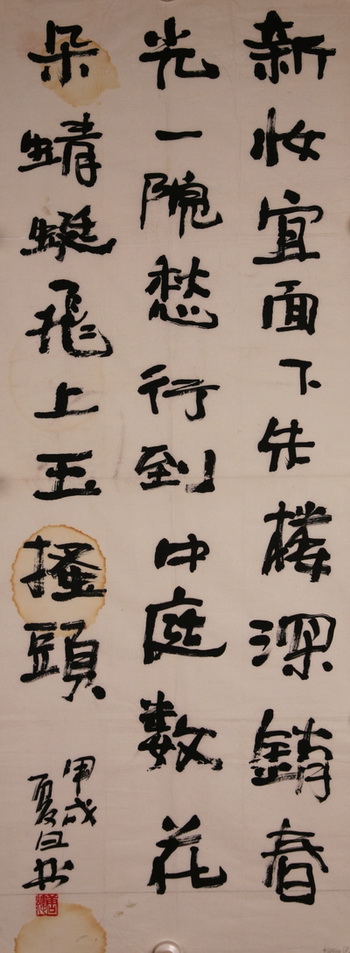 新妆宜面下朱樓深鎖春
光一院愁行到中庭數花
朵蜻蜓飛上玉搔頭
甲戌
夏日书